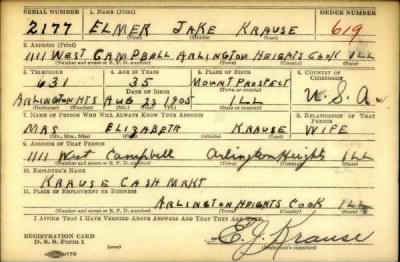 SERIAL NUMBER 1. NAME (Print) ORDER NUMBER
2177 ELMER JAKE KRAUSE 619
(First) (Middle) (Last)
2. ADDRESS (Print)
1111 WEST CAMPBELL ARLINGTON HEIGHTS COOK ILL
(Number and street or R. F. D. number) (Town) (County) (State)
3. TELEPHONE 4. AGE IN YEARS 5. PLACE OF BIRTH 6. COUNTRY OF CITIZENSHIP
631 35 MOUNT PROSPECT
DATE OF BIRTH (Town or county)
ARLINGTON HTS AUG 23 1905 ILL U.S.A.
(Exchange) (Number) (Mo.) (Day) (Yr.) (State or country)
7. NAME OF PERSON WHO WILL ALWAYS KNOW YOUR ADDRESS 8. RELATIONSHIP OF THAT PERSON
MRS ELIZABETH KRAUSE WIFE
(Mr., Mrs., Miss) (First) (Middle) (Last)
9. ADDRESS OF THAT PERSON
1111 West Campbell Arlington Heights ILL
(Number and street or R. F. D. number) (Town) (County) (State)
10. EMPLOYER'S NAME
KRAUSE CASH MRKT
11. PLACE OF EMPLOYMENT OR BUSINESS
ARLINGTON HEIGHTS COOK ILL
(Number and street or R. F. D. number) (Town) (County) (State)
I AFFIRM THAT I HAVE VERIFIED ABOVE ANSWERS AND THAT THEY ARE TRUE.
REGISTRATION CARD
D. S. S. Form 1 E. J. Krause
(Registrant's signature)